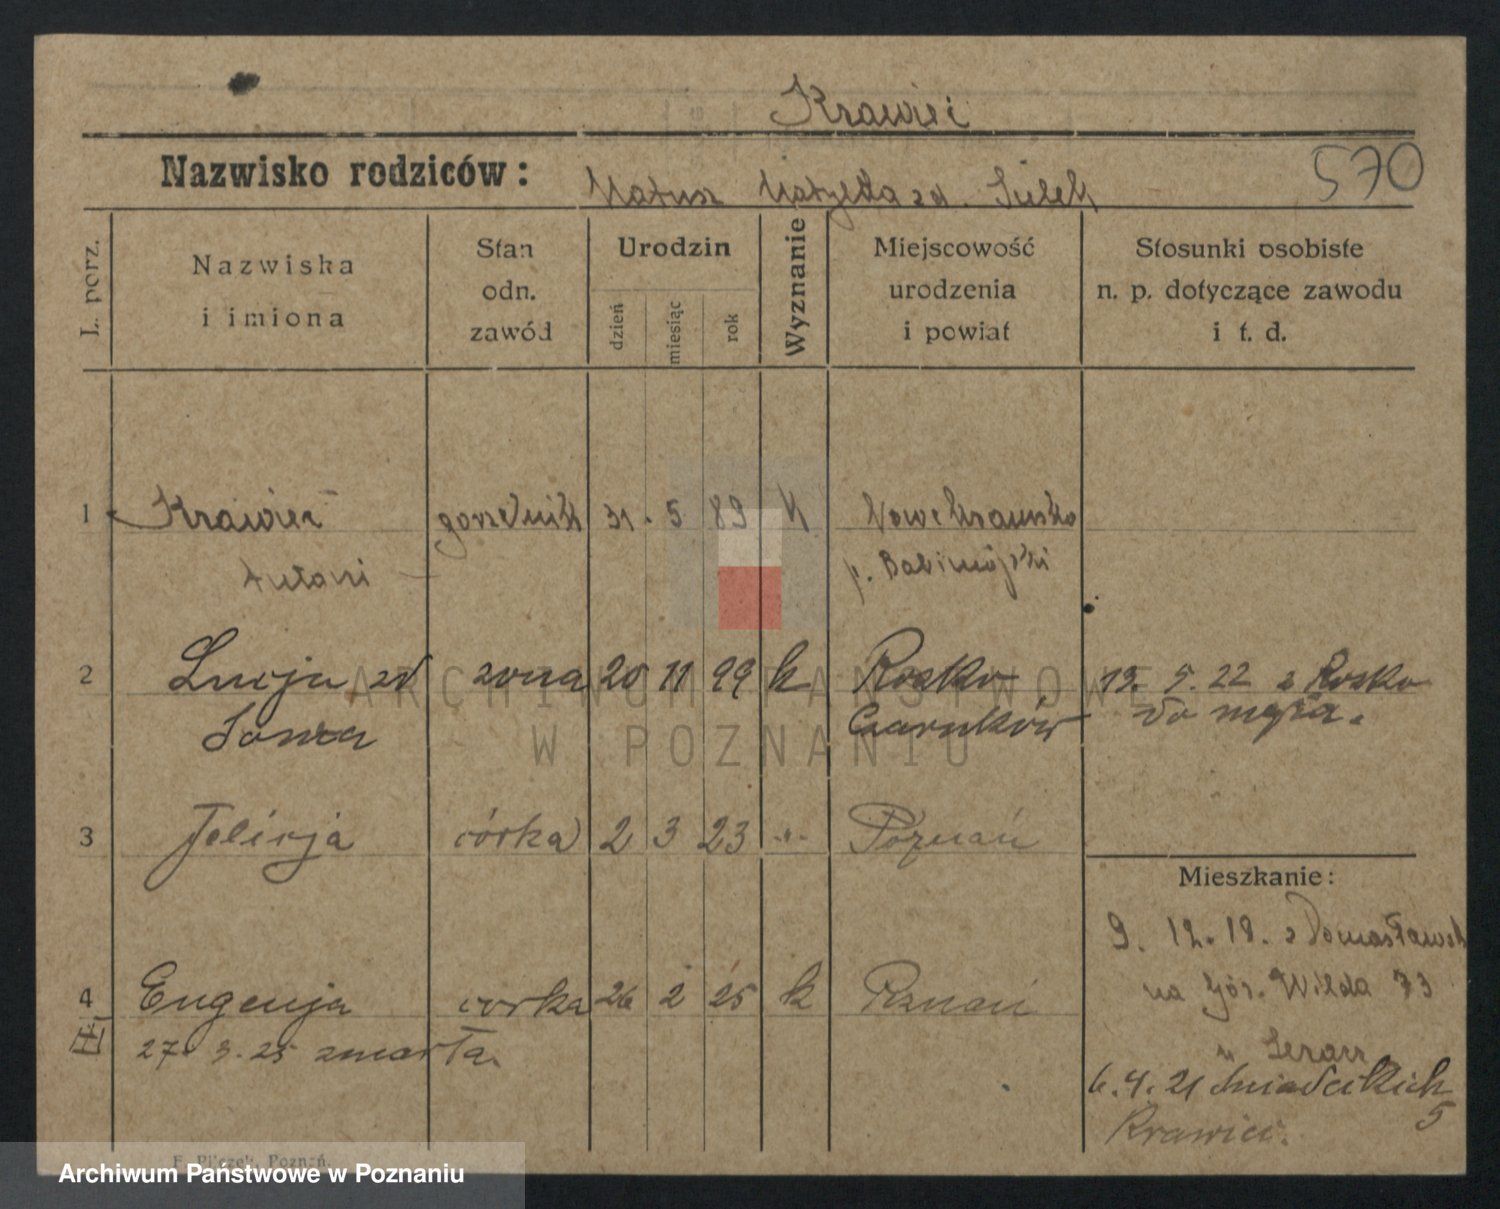 Krawiec
Nazwisko rodziców: Matusz Matylda zd. Sulek
570
L. porz.
Nazwiska i imiona
Stan odn. zawód
Urodzin
dzień
miesiąc
rok
Wyznanie
Miejscowość urodzenia i powiat
Stosunki osobiste n. p. dotyczące zawodu i t. d.
1 Krawiec gorzelnik 31. 5 89 k Nowe Kramsko
Antoni p. Babimojski
2 Lucja zd zona 20 11 99 k Rosko 13. 5. 22 z Rosko
Sowa Czarnków do męża.
3 Felicja córka 2 3 23 -"- Poznań
Mieszkanie:
9. 12. 18. z Domasławek
na Gór. Wilda 73
4 Eugenja corka 26 2 25 k Pznań
27. 3. 25 zmarła.
6. 4. 21 Śniadeckich
5
Krawiec.
F. Pilczek, Poznań.
ARCHIWUM PAŃSTWOWE
W POZNANIU
Archiwum Państwowe w Poznaniu